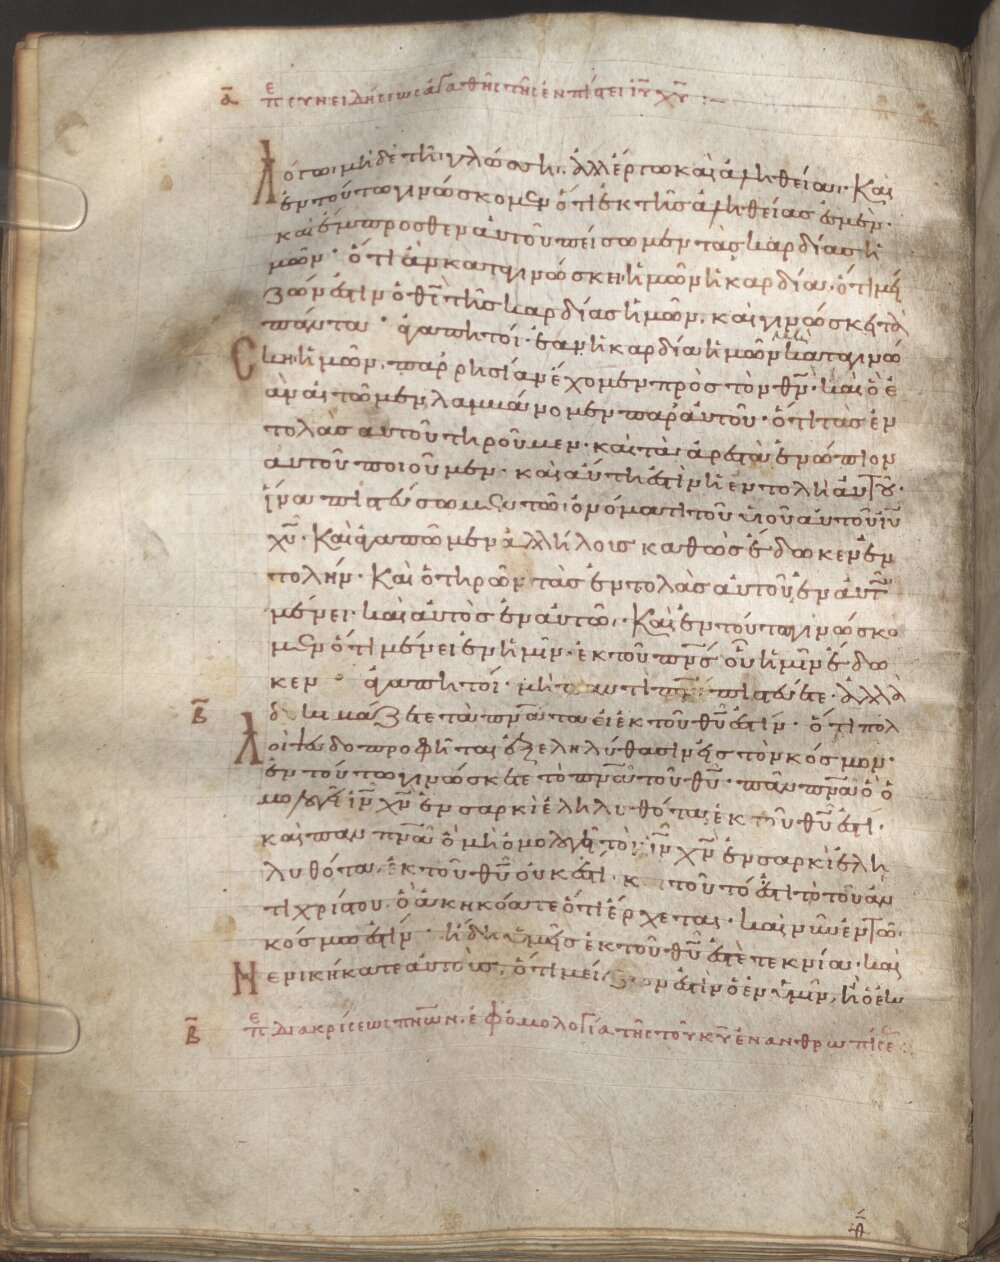 ᾱ περ συνειδήσεως ἀγαθῆς τῆς ἐν πίστει ἰῦ χῦ :—
λόγω· μὴδὲ τῆ γλώσση· ἀλλ' ἔργω καὶ ἀληθεία· Καὶ
ἐν τούτω γινώσκομεν ὅτι ἐκ τῆς ἀληθείας ἐσμὲν·
καὶ ἔμπροσθεν ἀυτοῦ πείσωμεν τὰς καρδίας ἡ
μῶν· ὅτι ἂν καταγινώσκη ἡμῶν ἡ καρδία, ὅτι μεί
ζων ἐστὶν ὁ θς τῆς καρδίας ἡμῶν, καὶ γινώσκει τὰ
πάντα· ἀγαπητοί· ἐὰν ἡ καρδία ἡμῶν μὴ καταγινώ
σκη ἡμῶν, παρρησίαν ἔχομεν πρὸς τὸν θν̄· καὶ ὃ ἐ
ὰν αἰτῶμεν, λαμβάνομεν παρ' ἀυτοῦ· ὅτι τὰς ἐν
τολὰς αυτοῦ τηροῦμεν· καὶ τὰ ἀρεστὰ ἐνώπιον
αυτοῦ ποιοῦμεν· καὶ αὕτη ἐστὶν ἡ ἐντολὴ ἀυτοῦ·
ἵνα πιστεύσωμεν τῶ ὀνόματι τοῦ υἱοῦ αὐτοῦ ἰῦ
χῦ· Καὶ ἀγαπῶμεν ἀλλήλοις καθὼς ἔδωκεν ἐν
τολήν· Καὶ ὁ τηρῶν τὰς ἐντολὰς αὐτοῦ ἐν ἀυτῶ
μένει· καὶ αὐτὸς ἐν αυτῶ· Καὶ ἐν τούτω γινώσκο
μεν ὅτι μένει ἐν ἡμῖν· ἐκ τοῦ πνς̄ οὗ ἡμῖν ἔδω
κεν· ἀγαπητοί· μὴ παντὶ πνῑ πιστεύετε· ἀλλὰ
β̄
δοκιμάζετε τὰ πνᾱτα εἰ ἐκ τοῦ θῦ ἐστὶν· ὅτι πολ
λοὶ ψευδοπροφῆται ἐξεληλύθασιν εἰς τὸν κόσμον·
ἐν τούτω γινώσκετε τὸ πνᾱ τοῦ θῦ· πᾶν πνᾱ ὃ ὁ
μολογεῖ ἰν̄ χν̄ ἐν σαρκὶ ἐληλυθότα, ἐκ τοῦ θῦ ἐστὶ·
καὶ παν πνᾱ ὃ μὴ ὁμολογεῖ τὸν ἰν̄ χν̄ ἐν σαρκὶ ἐλη
λυθότα, ἐκ τοῦ θῦ ουκ ἐστὶ· κ τοῦτό ἐστι τὸ τοῦ ἀν
τιχρίστου· ὃ ἀκηκόατε ὅτι ἔρχεται· καὶ νῦν ἐν τῶ
κόσμω ἐστὶν ἤδη· ὑμεῖς ἐκ τοῦ θῦ ἐστὲ τεκνία· καὶ
νενικήκατε αυτούς, ὅτι μείζων ἐστὶν ὁ ἐν ὑμῖν, ἢ ὁ ἐν
β̄ περ διακρίσεως πνῶν· ἐφ' ὁμολογία τῆς τοῦ κῦ ἐνανθρωπίσε